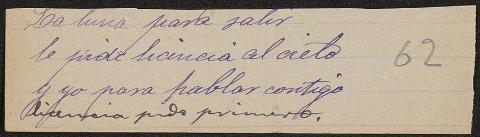 La luna para salir
le pide licencia al cielo
y yo para hablar contigo
licencia pido primero.
62